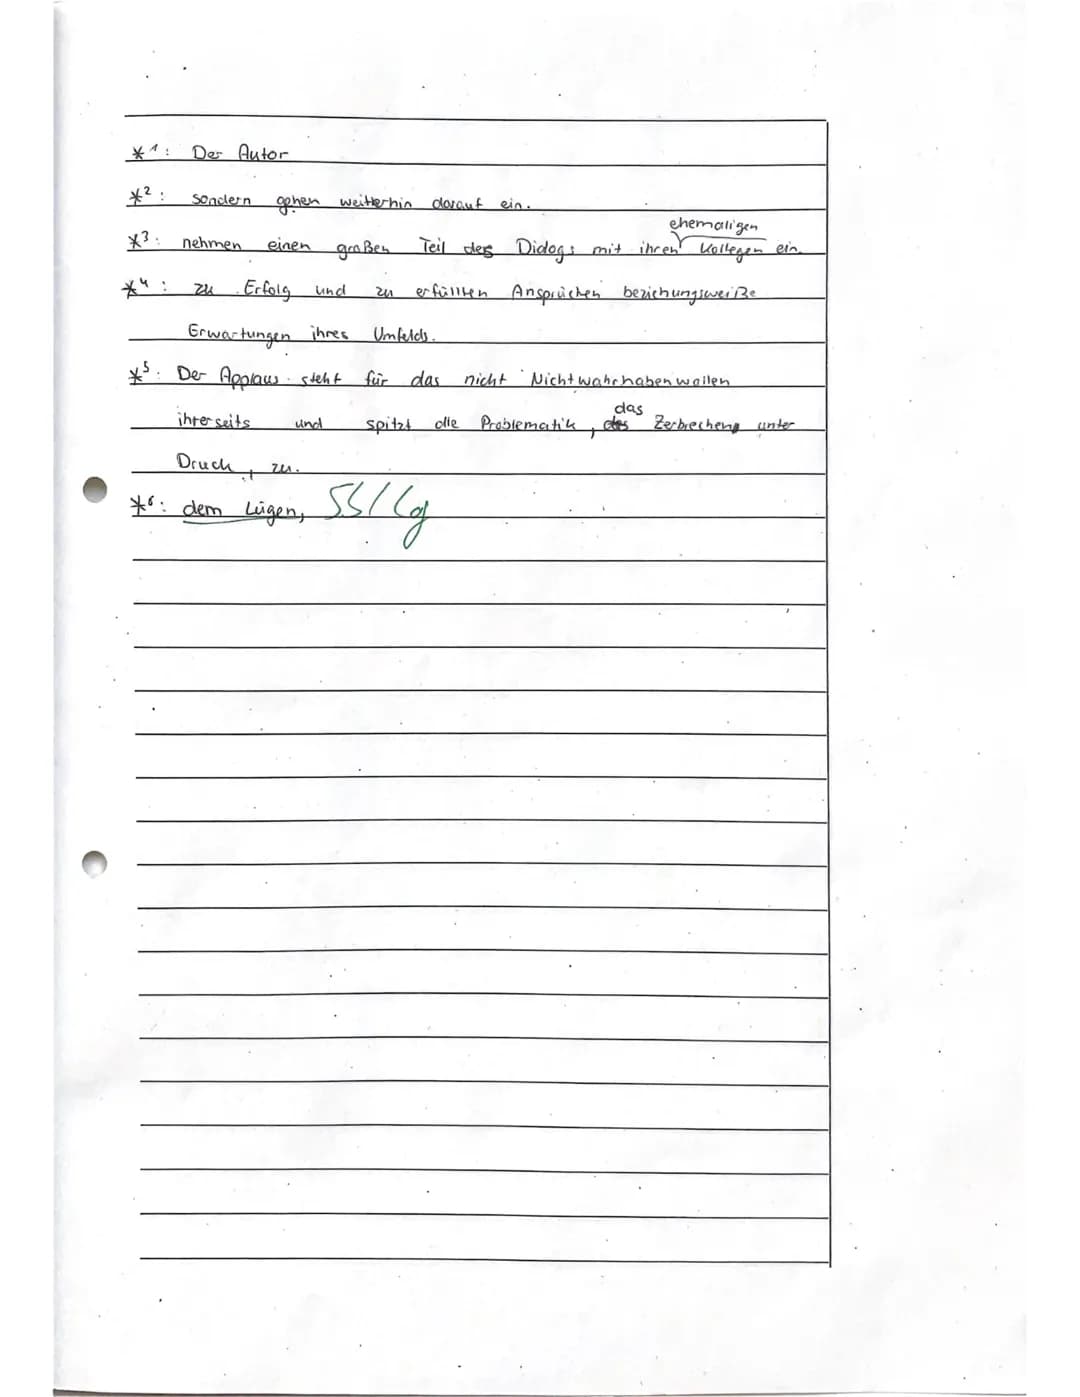 *1: Der Autor
*2: sondern gehen weitterhin darauf ein.
ehemaligen
*3: nehmen einen großen Teil des Dialogs mit ihren Kollegen ein.
*4: zu Erfolg und zu erfüllten Ansprüchen beziehungsweiße
Erwartungen ihres Umfelds.
*5: Der Applaus steht für das nicht Nichtwahrhabenwollen
das
ihrerseits und spitzt die Problematik, des Zerbrechens unter
Druck, zu.
*6: dem Lügen,